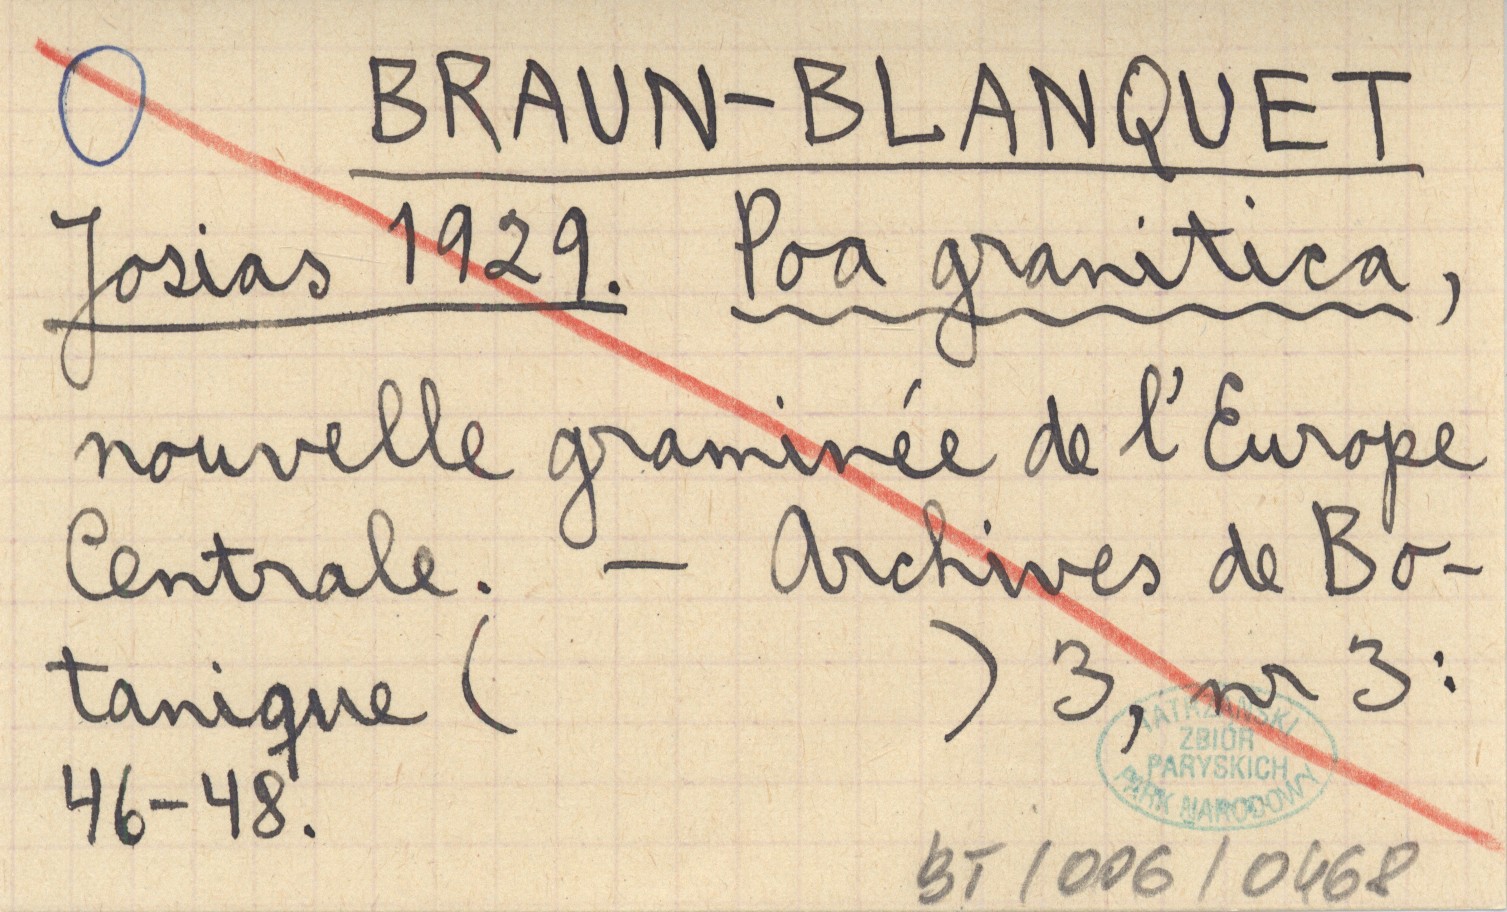 BRAUN-BLANQUET
Josias 1929. Poa granitica,
nouvelle graminée de l'Europe
Centrale. — Archives de Bo-
tanique ( ) 3, nr 3:
46-48.
TATRZAŃSKI
ZBIÓR
PARYSKICH
PARK NARODOWY
BT/006/0468